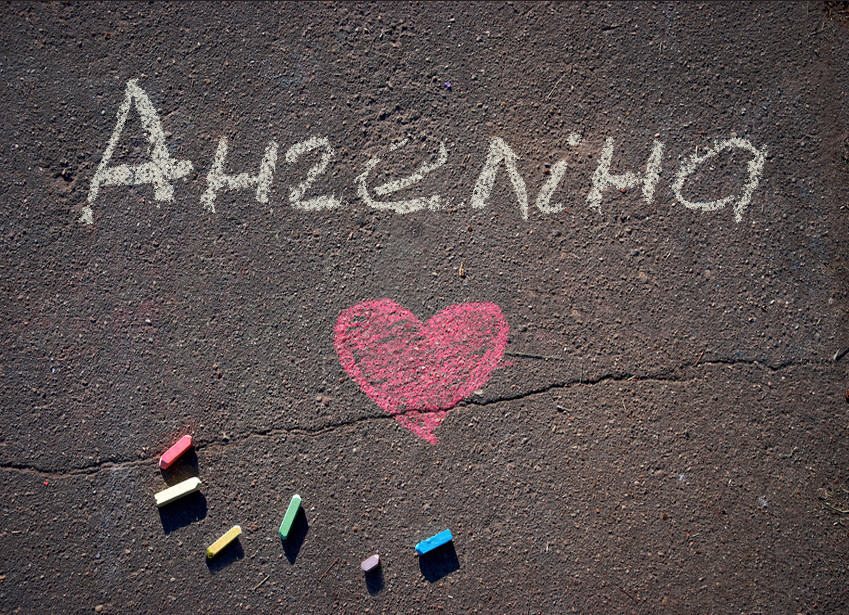 Ангеліна